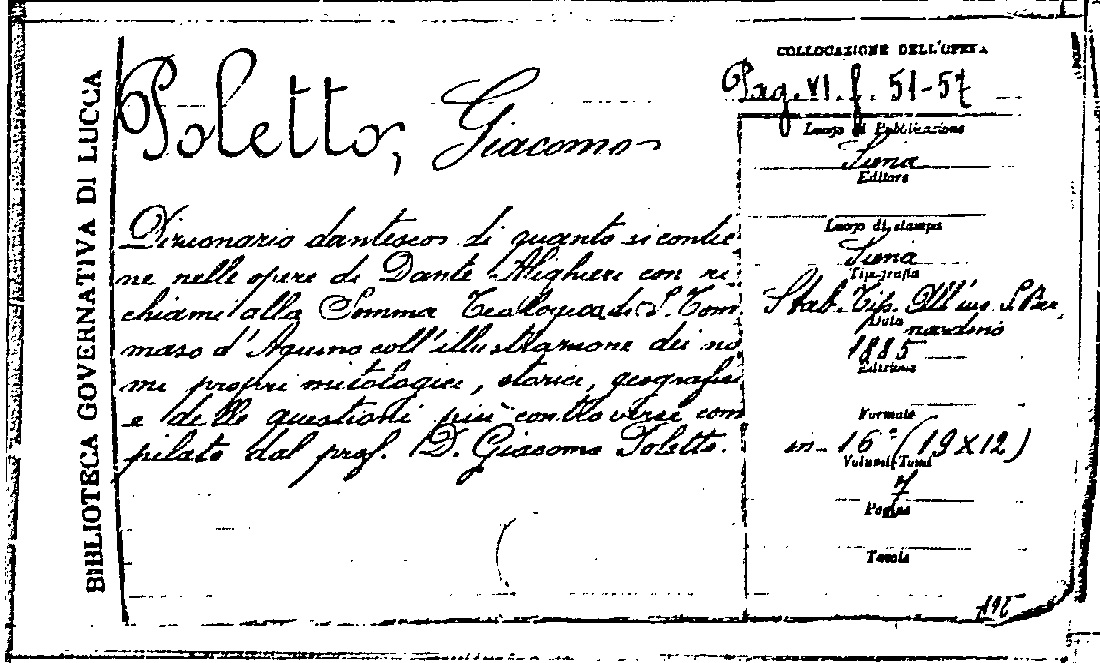 BIBLIOTECA GOVERNATIVA DI LUCCA
Poletto, Giacomo
Dizionario dantesco di quanto si contie-
ne nelle opere di Dante Alighieri con ri-
chiami alla Somma Teologica di S. Tom-
maso d'Aquino coll'illustrazione dei no-
mi propri mitologici, storici, geografici
e delle questioni più controverse com-
pilato dal prof. D. Giacomo Poletto.
COLLOCAZIONE DELL'OPERA
Pag. VI. f. 51-57
Luogo di Pubblicazione
Siena
Editore
Luogo di stampa
Siena
Tipografia
Stab. Tip. All'ins. S. Ber-
nardino
Data
1885
Edizione
Formato
in-16° (19x12)
Volumi-Tomi
7
Pagine
Tavole